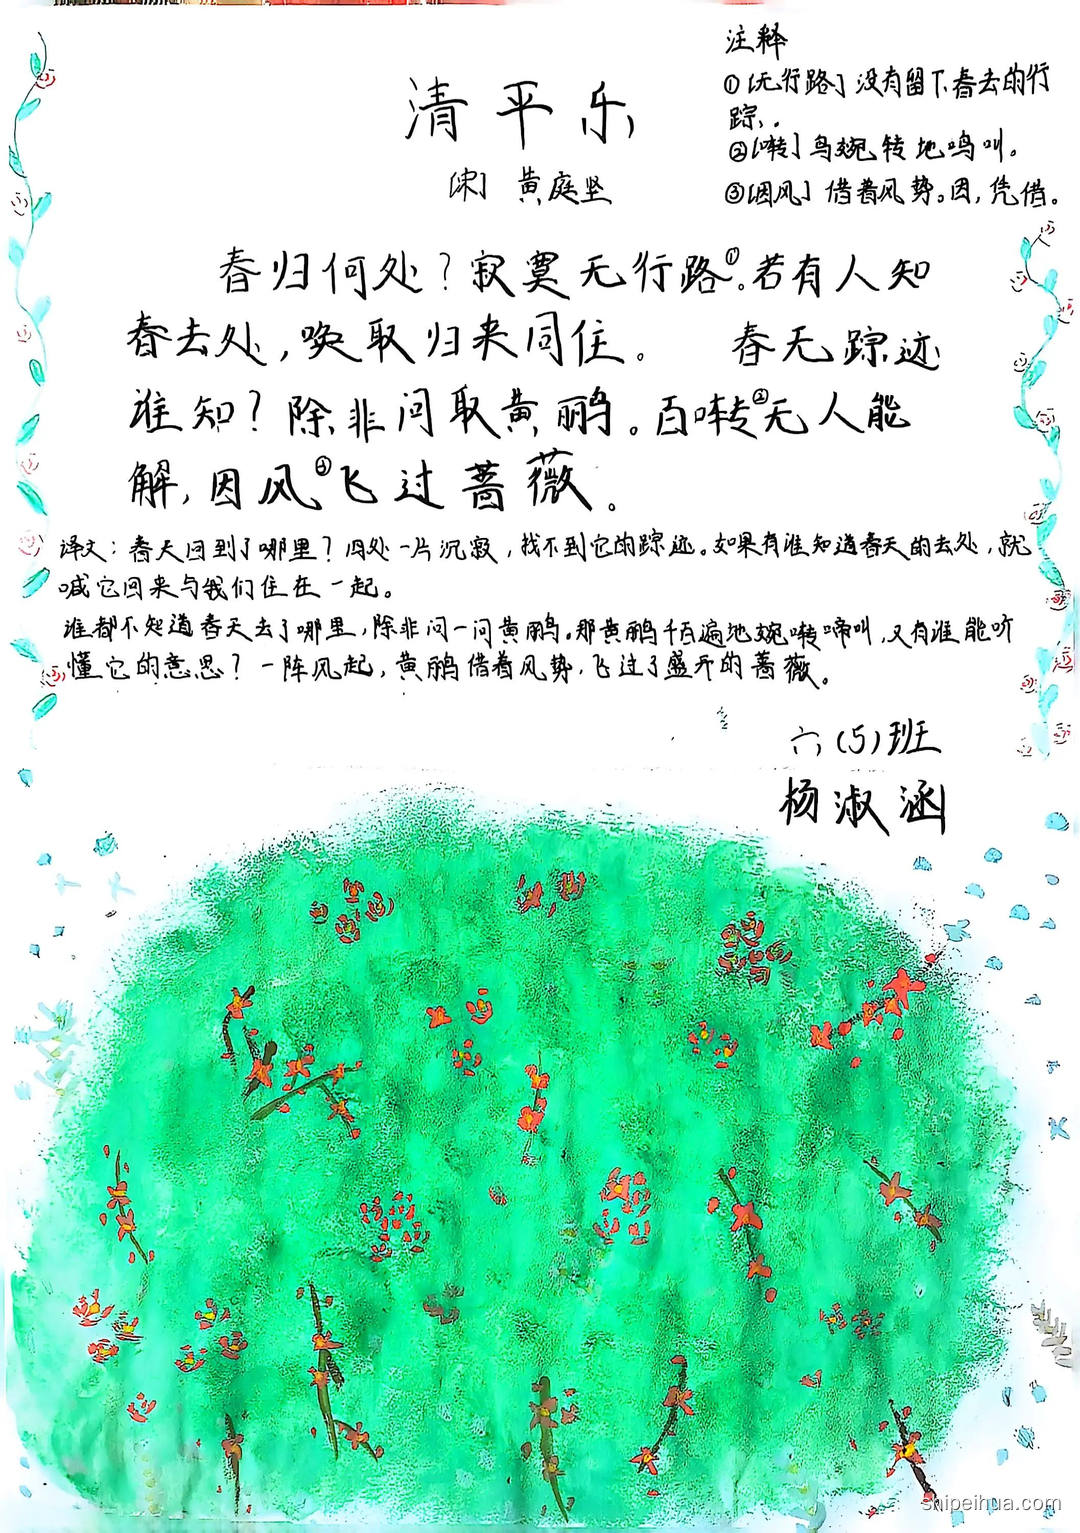 清平乐
[宋] 黄庭坚
注释
①[无行路]没有留下春去的行
踪。
②[啭]鸟婉转地鸣叫。
③[因风]借着风势。因,凭借。
春归何处?寂寞无行路①。若有人知
春去处,唤取归来同住。 春无踪迹
谁知?除非问取黄鹂。百啭②无人能
解,因风③飞过蔷薇。
译文:春天回到了哪里?四处一片沉寂,找不到它的踪迹。如果有谁知道春天的去处,就
喊它回来与我们住在一起。
谁都不知道春天去了哪里,除非问一问黄鹂。那黄鹂千百遍地婉啭啼叫,又有谁能听
懂它的意思?一阵风起,黄鹂借着风势,飞过了盛开的蔷薇。
六(5)班
杨淑涵
shipeihua.com